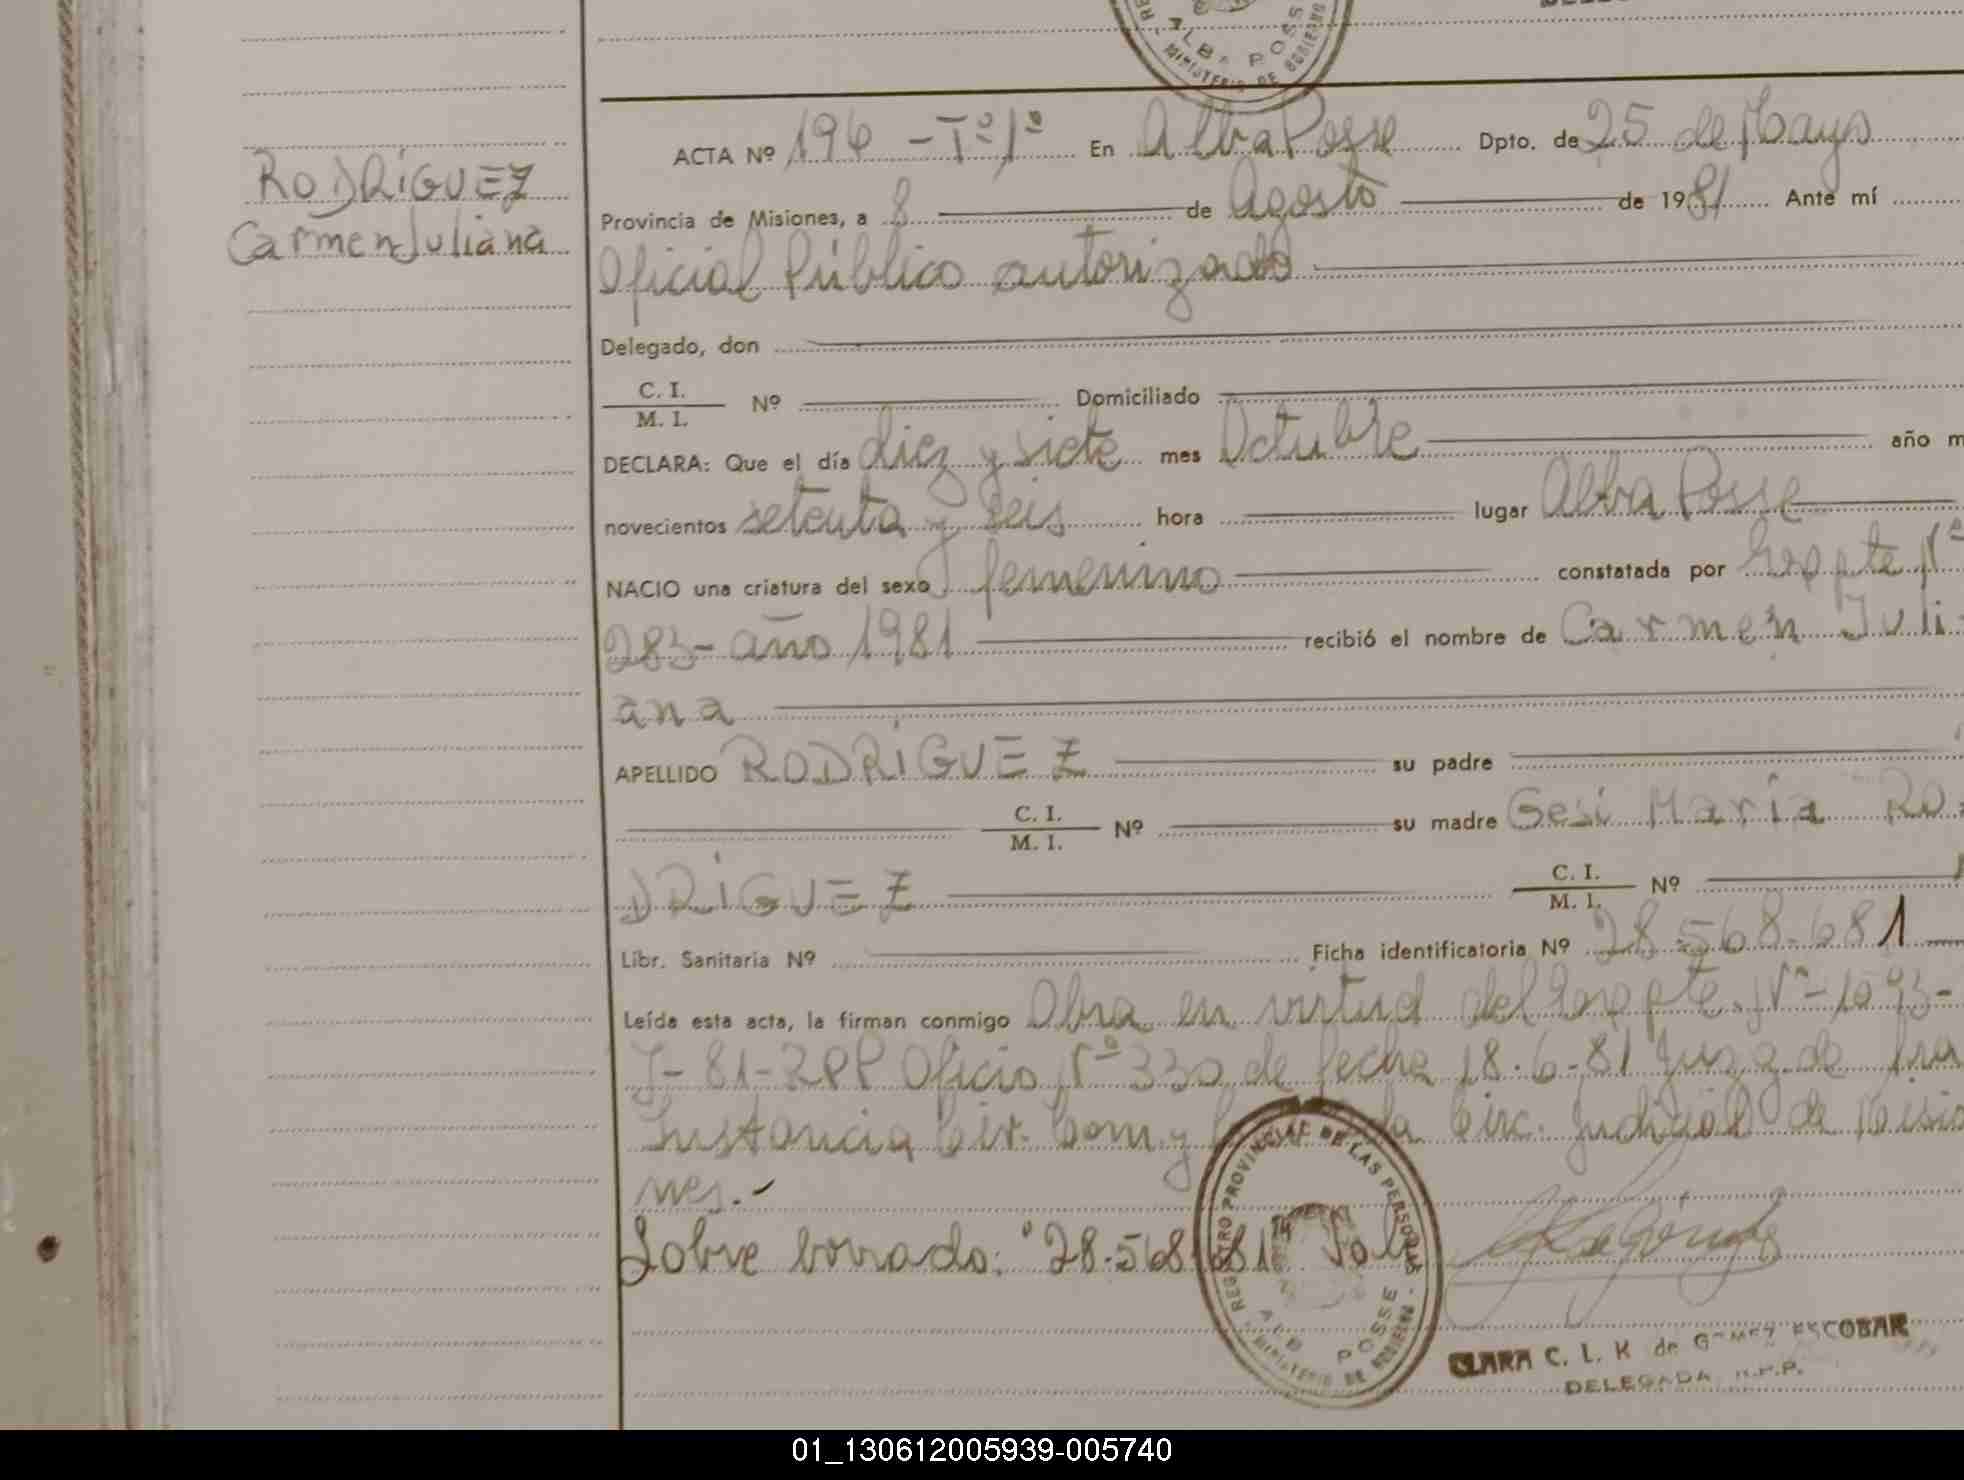 ALBA POSSE
MINISTERIO DE GOBIERNO
ACTA Nº 196 - Tº 1º En Alba Posse Dpto. de 25 de Mayo
RODRÍGUEZ
Carmen Juliana
Provincia de Misiones, a 8 de Agosto de 1981 Ante mí
Oficial Público autorizado
Delegado, don
C. I.
M. I. Nº Domiciliado
DECLARA: Que el día diez y siete mes Octubre año m
novecientos setenta y seis hora lugar Alba Posse
NACIO una criatura del sexo femenino constatada por Expte Nº
283- año 1981 recibió el nombre de Carmen Juli-
ana
APELLIDO RODRÍGUEZ su padre
C. I.
M. I. Nº su madre Gesi María RO-
DRÍGUEZ C. I.
M. I. Nº
Libr. Sanitaria Nº Ficha identificatoria Nº 28.568.681
Leída esta acta, la firman conmigo Obra en virtud del Expte. Nº 1093-
J-81-RPP Oficio Nº 330 de fecha 18-6-81 Juzg. de Pra
Instancia Civ. Com. y la Circ. Judicial de Misio
nes.-
Sobre borrado: "28.568.681" Vale
REGISTRO PROVINCIAL DE LAS PERSONAS
ALBA POSSE
MINISTERIO DE GOBIERNO
CLARA C. L. K de GOMEZ ESCOBAR
DELEGADA R.P.P.
01_130612005939-005740